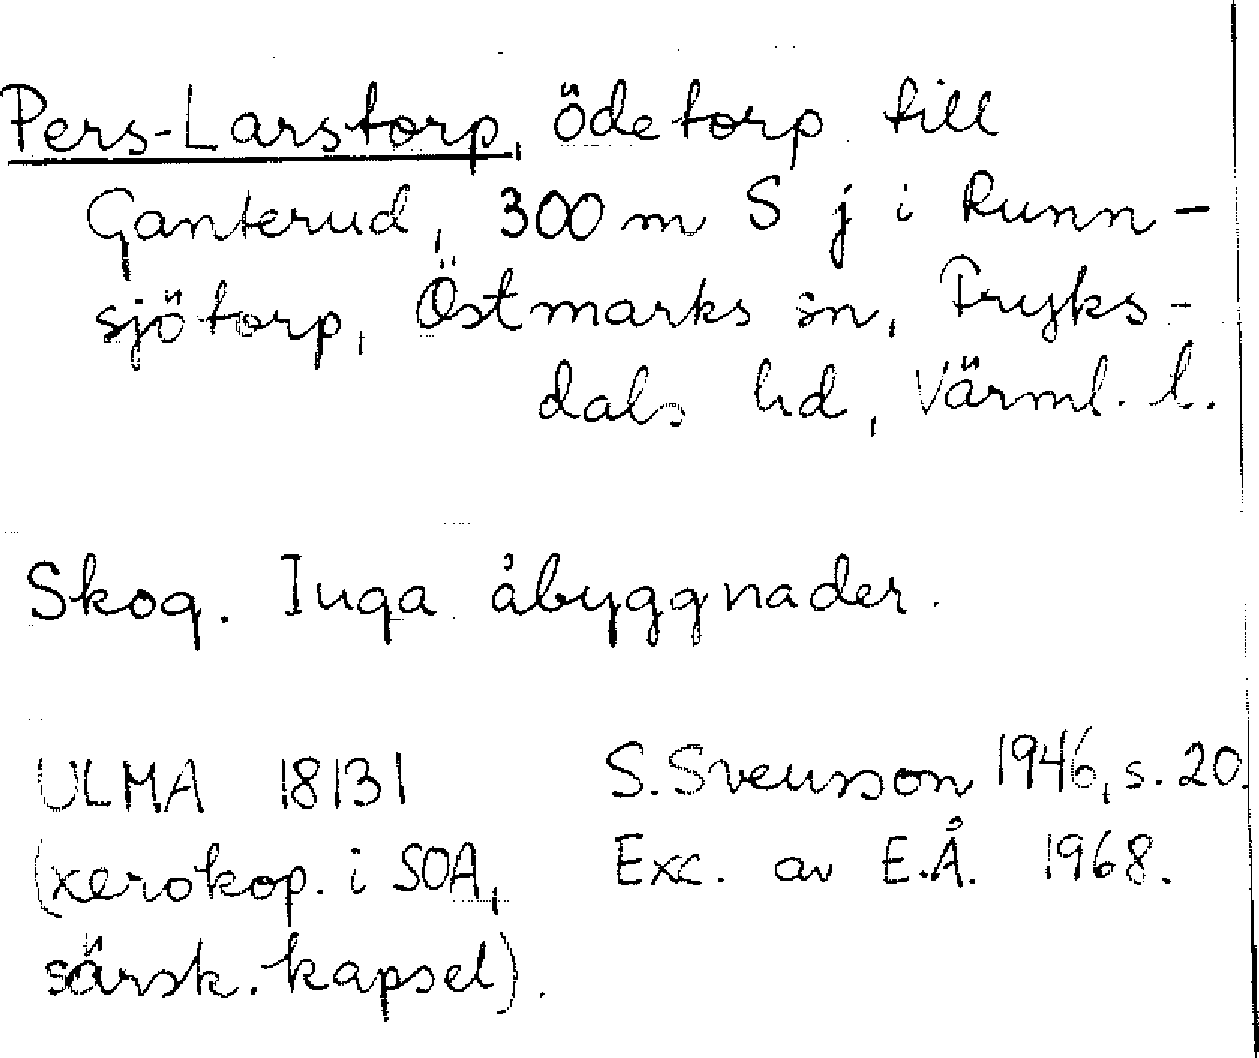 Pers-Larstorp, ödetorp till
Ganterud, 300 m S j i Runn-
sjötorp, Östmarks sn, Fryks-
dals hd, Värml. l.
Skog. Inga åbyggnader.
ULMA 18131 S. Svensson 1946, s. 20.
(xerokop. i SOA, Exc. av E.Å. 1968.
särsk. kapsel).